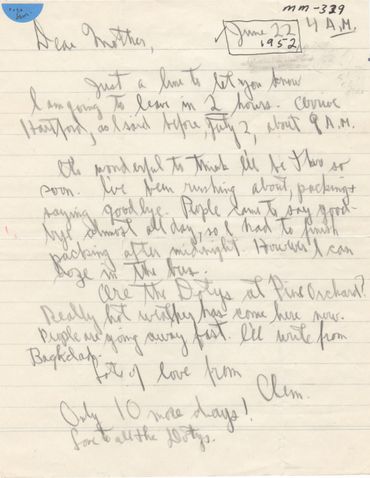 mm-339
June 22
1952
4 A.M.
Dear Mother,
Just a line to let you know
I am going to leave in 2 hours. Arrive
Hartford, as I said before, July 2, about 9 A.M.
It's wonderful to think I'll be so
soon. I've been rushing about, packing +
saying goodbye. People came to say good-
bye almost all day, so I had to finish
packing after midnight. However I can
doze in the bus.
Are the Dotys at Pine Orchard?
Really hot weather has come here now.
People are going away fast. I'll write from
Baghdad.
Lots of love from
Clem.
Only 10 more days!
Love to all the Dotys.